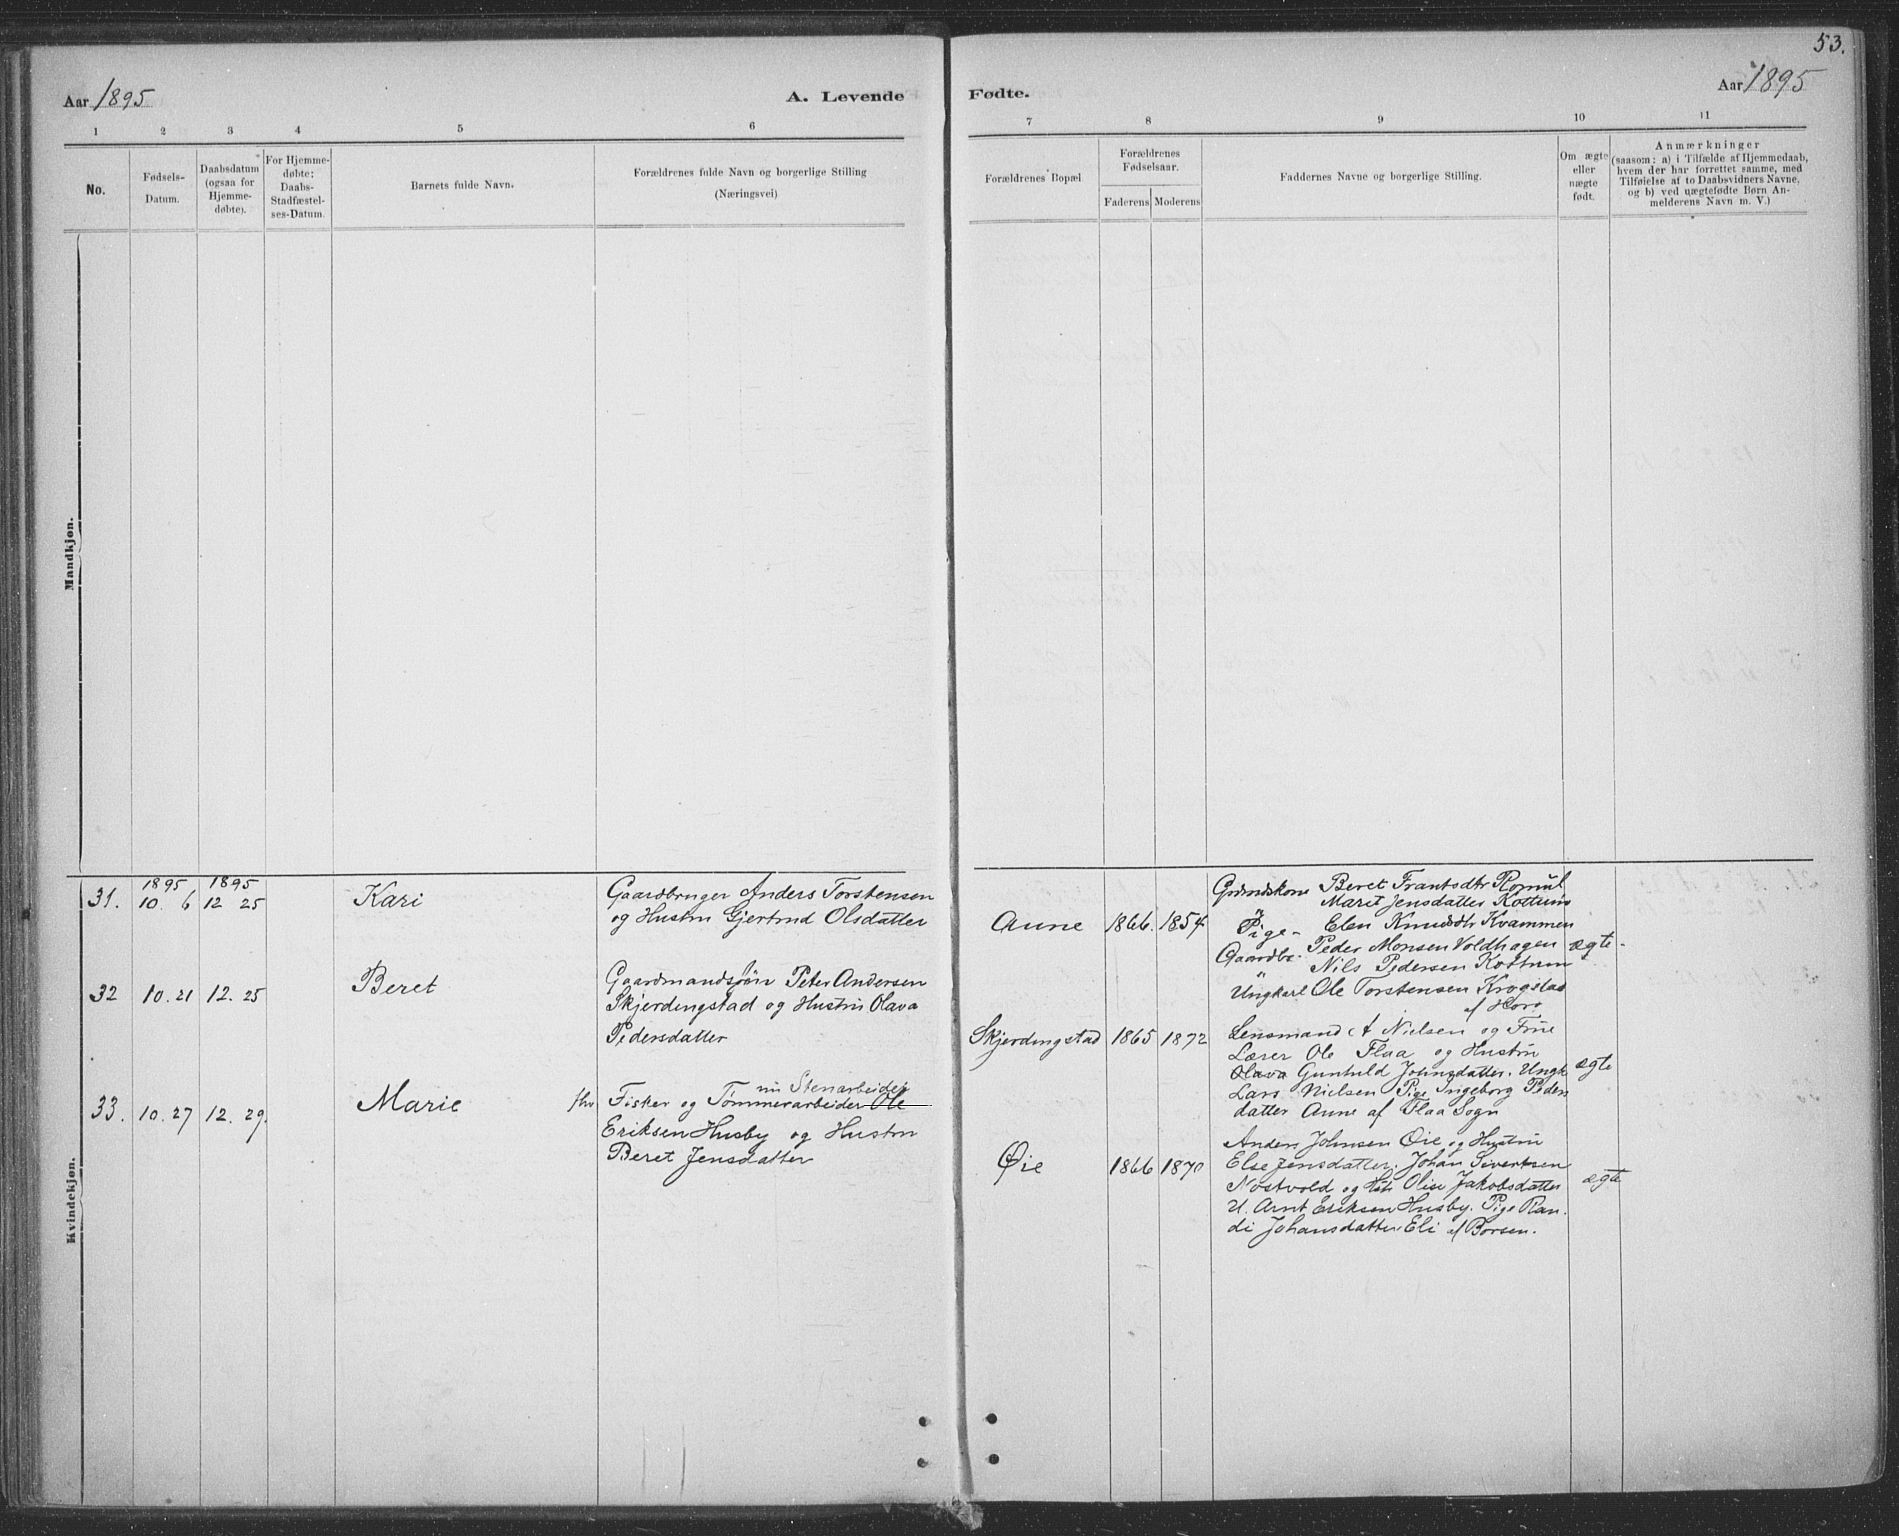 53.
Aar 1895
A. Levende Fødte.
Aar 1895
1 2 3 4 5 6 7 8 9 10 11
No.
Fødsels-
Datum.
Daabsdatum
(ogsaa for
Hjemme-
døbte).
For Hjemme-
døbte:
Daabs-
Stadfæstel-
ses-Datum.
Barnets fulde Navn.
Forældrenes fulde Navn og borgerlige Stilling
(Næringsvei)
Forældrenes Bopæl
Forældrenes
Fødselsaar.
Faderens Moderens
Faddernes Navne og borgerlige Stilling.
Om ægte
eller
nægte
født.
Anmærkninger
(saasom: a) i Tilfælde af Hjemmedaab,
hvem der har forrettet samme, med
Tilføielse af to Daabsvidners Navne,
og b) ved uægtefødte Børn An-
melderens Navn m. V.)
Mandkjøn.
Kvindekjøn.
31.
1895
10. 6
1895
12 25
Kari
Gaardbruger Anders Torstensen
og Hustru Gjertrud Olsdatter
Aune
1866. 1854
Beret Frantsdtr
Marit Jensdatter Kottum
Pige - Elen Knudsdtr Kvammen
Gaardbr. Peder Monsen Voldhagen
Nils Pedersen Kottum
Ungkarl Ole Torstensen Krogstad
af
ægte
32
10. 21
12. 25
Beret
Gaardmandssøn Peter Andersen
Skjerdingstad og Hustru Olava
Pedersdatter
Skjerdingstad
1865 1872
Lensmand A Nielsen og Frue
Lærer Ole Flaa og Hustru
Olava Gunhild Johnsdatter. Ungk
Lars Nielsen Pige Ingeborg Peders
datter Aune af Flaa Sogn
ægte
33.
10. 27
12. 29.
Marie
nu Stenarbeider
Fisker og Tømmerarbeider Ole
Eriksen Husby og Hustru
Beret Jensdatter
Øie
1866 1870
Anders Johnsen Øie og Hustru
Else Jensdatter. Johan Sivertsen
Nostvold og Olise Jakobsdatter
U. Arnt Eriksen Husby. Pige Ran-
di Johansdatter Eli af Børsen.
ægte